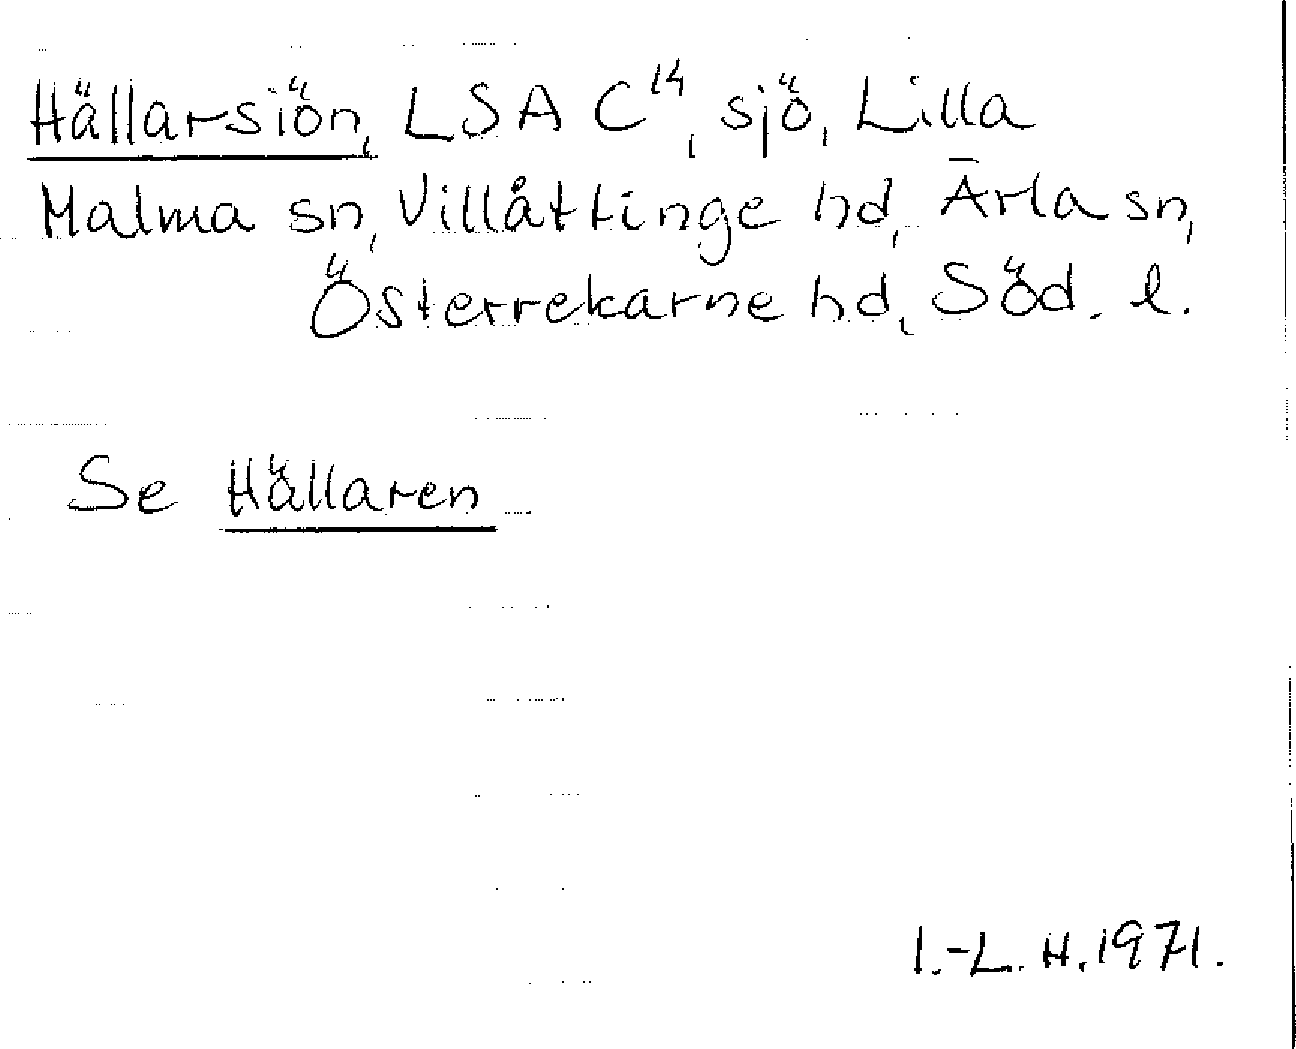 Hällarsiön, LSA C¹⁴, sjö, Lilla
Malma sn, Villåttinge hd, Ārla sn,
Österrekarne hd, Söd. l.
Se Hällaren
I.-L. H. 1971.